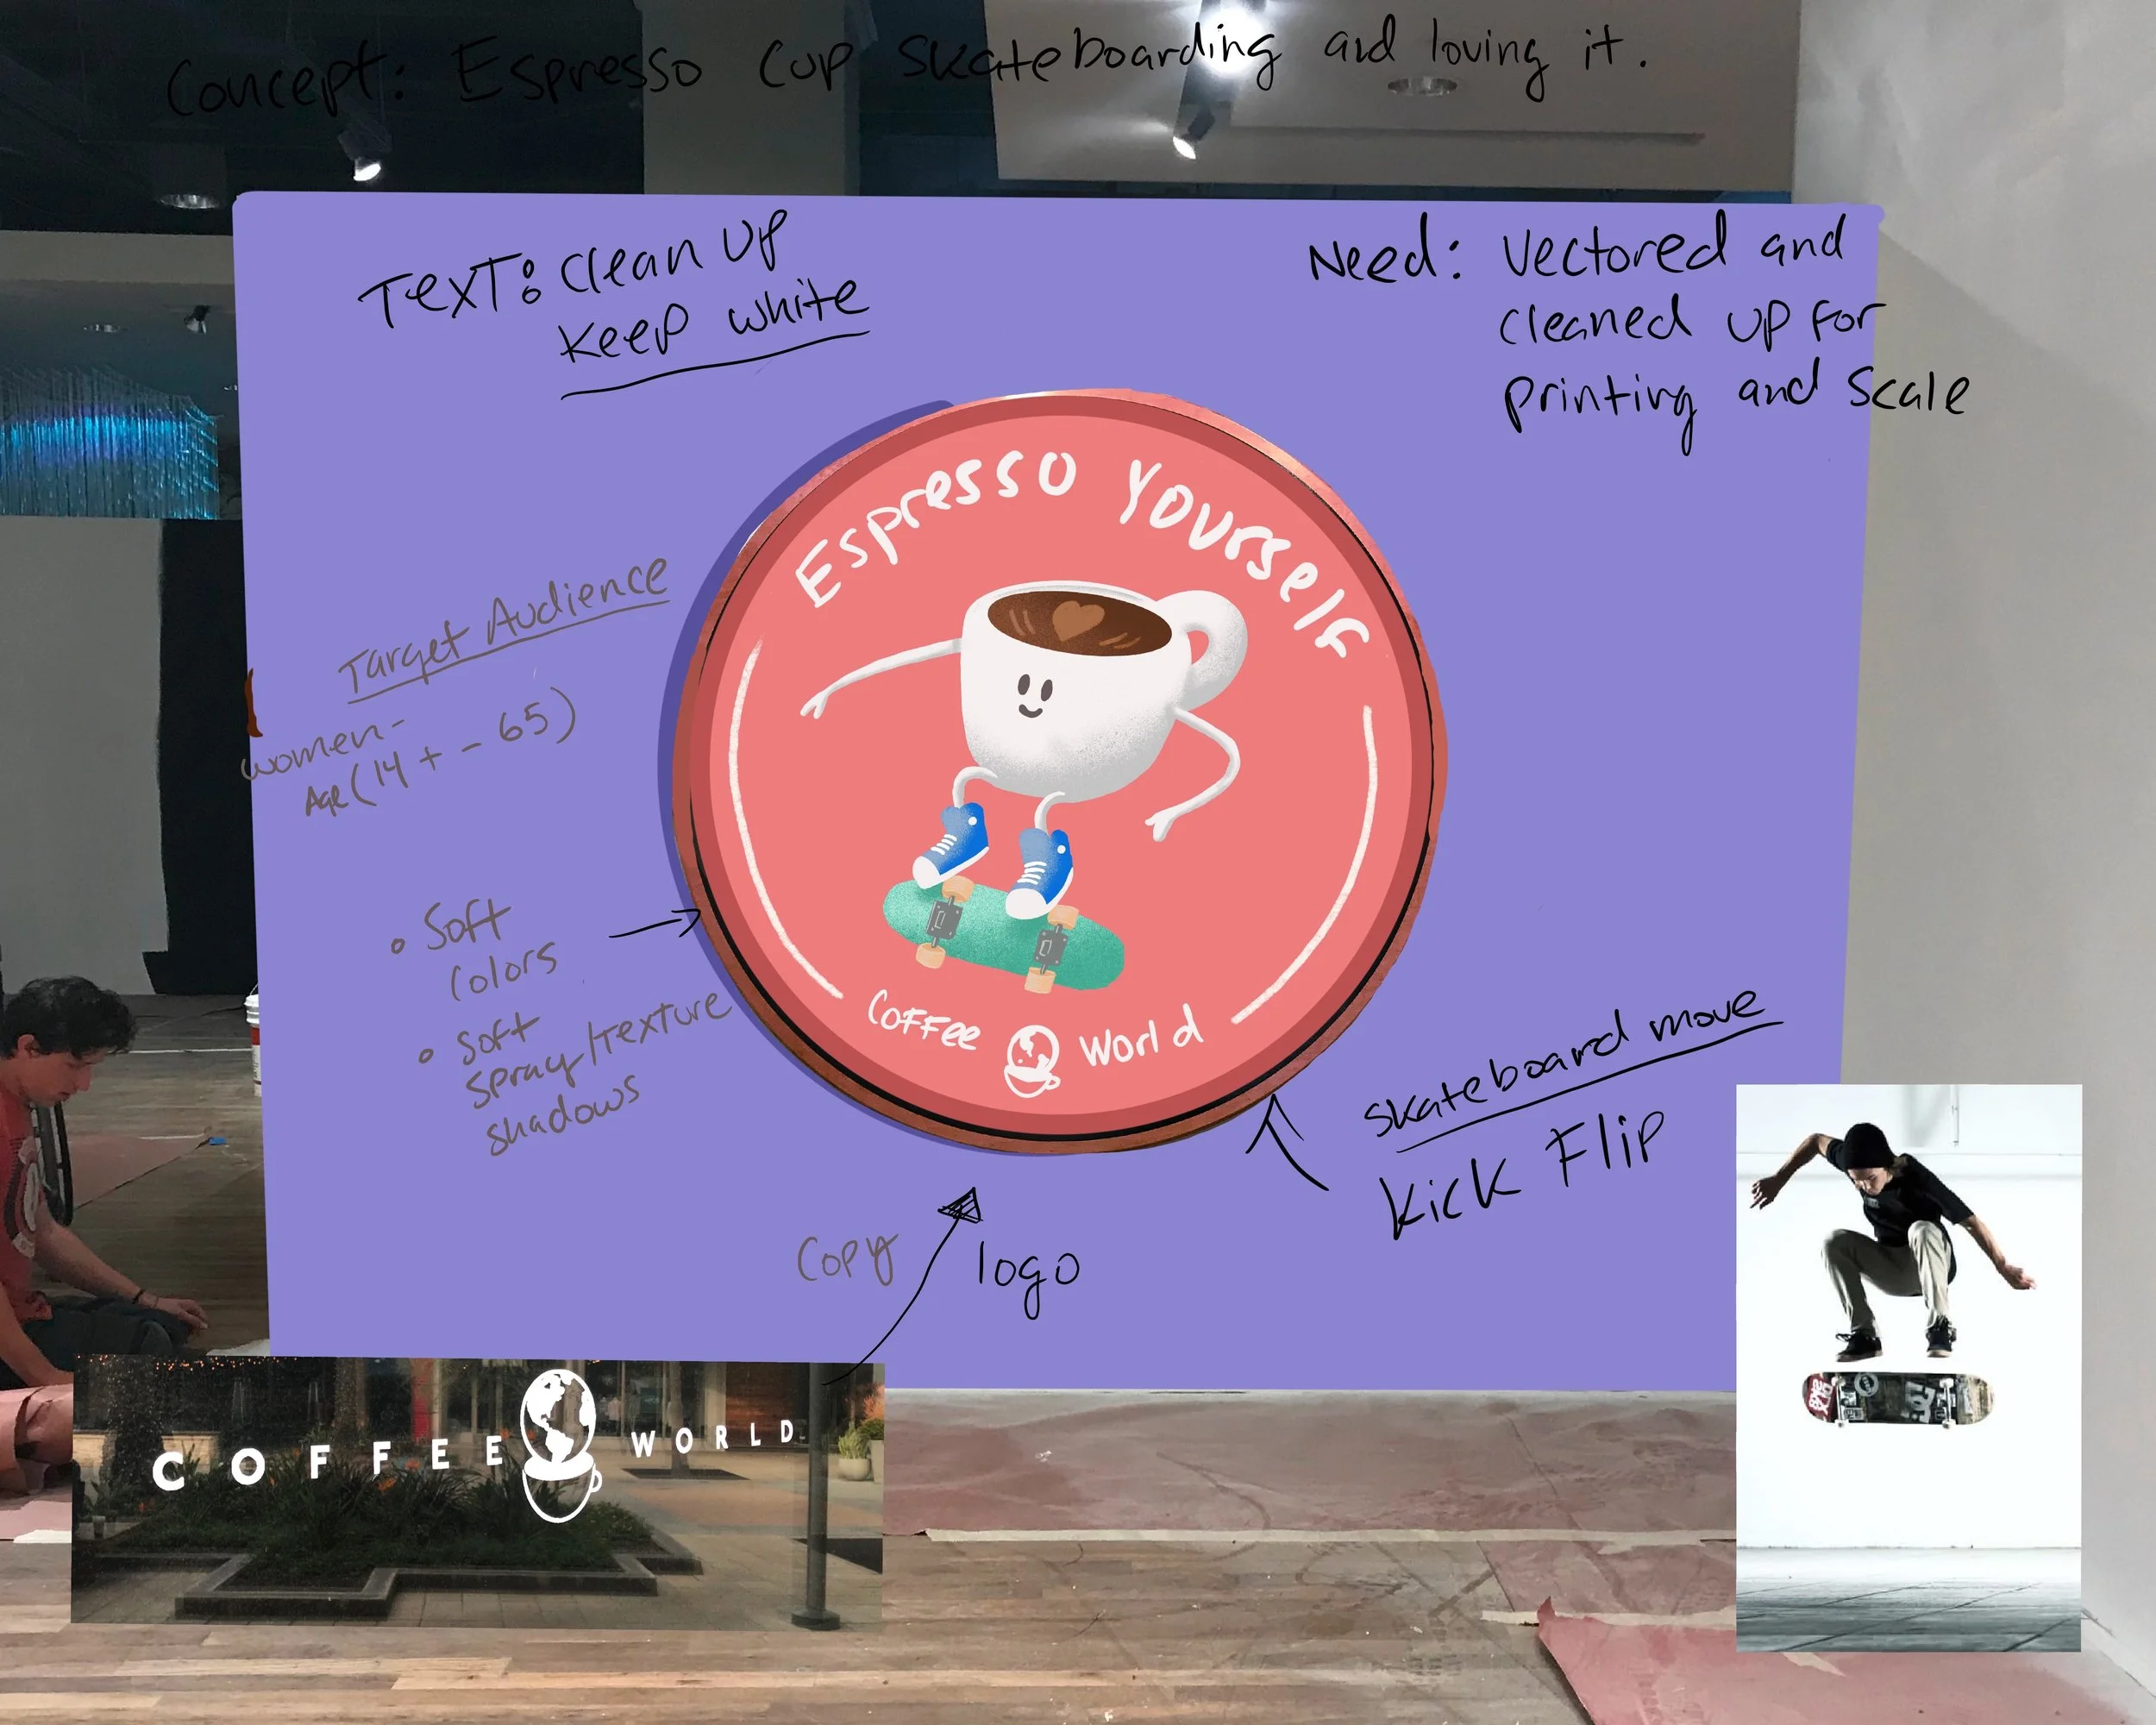 Concept: Espresso Cup Skateboarding and loving it.
Text: Clean up
Keep white
Need: Vectored and
cleaned up for
printing and scale
Espresso Yourself
Target Audience
women-
Age (14+ - 65)
• Soft
Colors
• Soft
Spray/texture
shadows
Coffee World
Skateboard move
Kick Flip
Copy logo
COFFEE WORLD